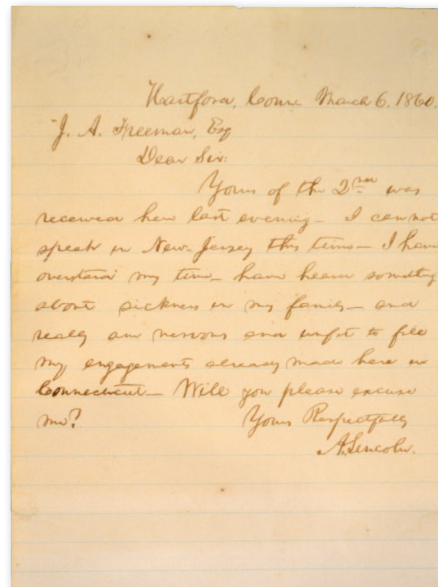 Hartford, Conn March 6. 1860.
J. A. Freeman, Esq
Dear Sir:
Yours of the 2nd was
received here last evening— I can not
speak in New-Jersey this time— I have
overstaid my time— have heard something
about sickness in my family— and
really am nervous and unfit to fill
my engagements already made here in
Connecticut— Will you please excuse
me?
Yours Respectfully
A. Lincoln.